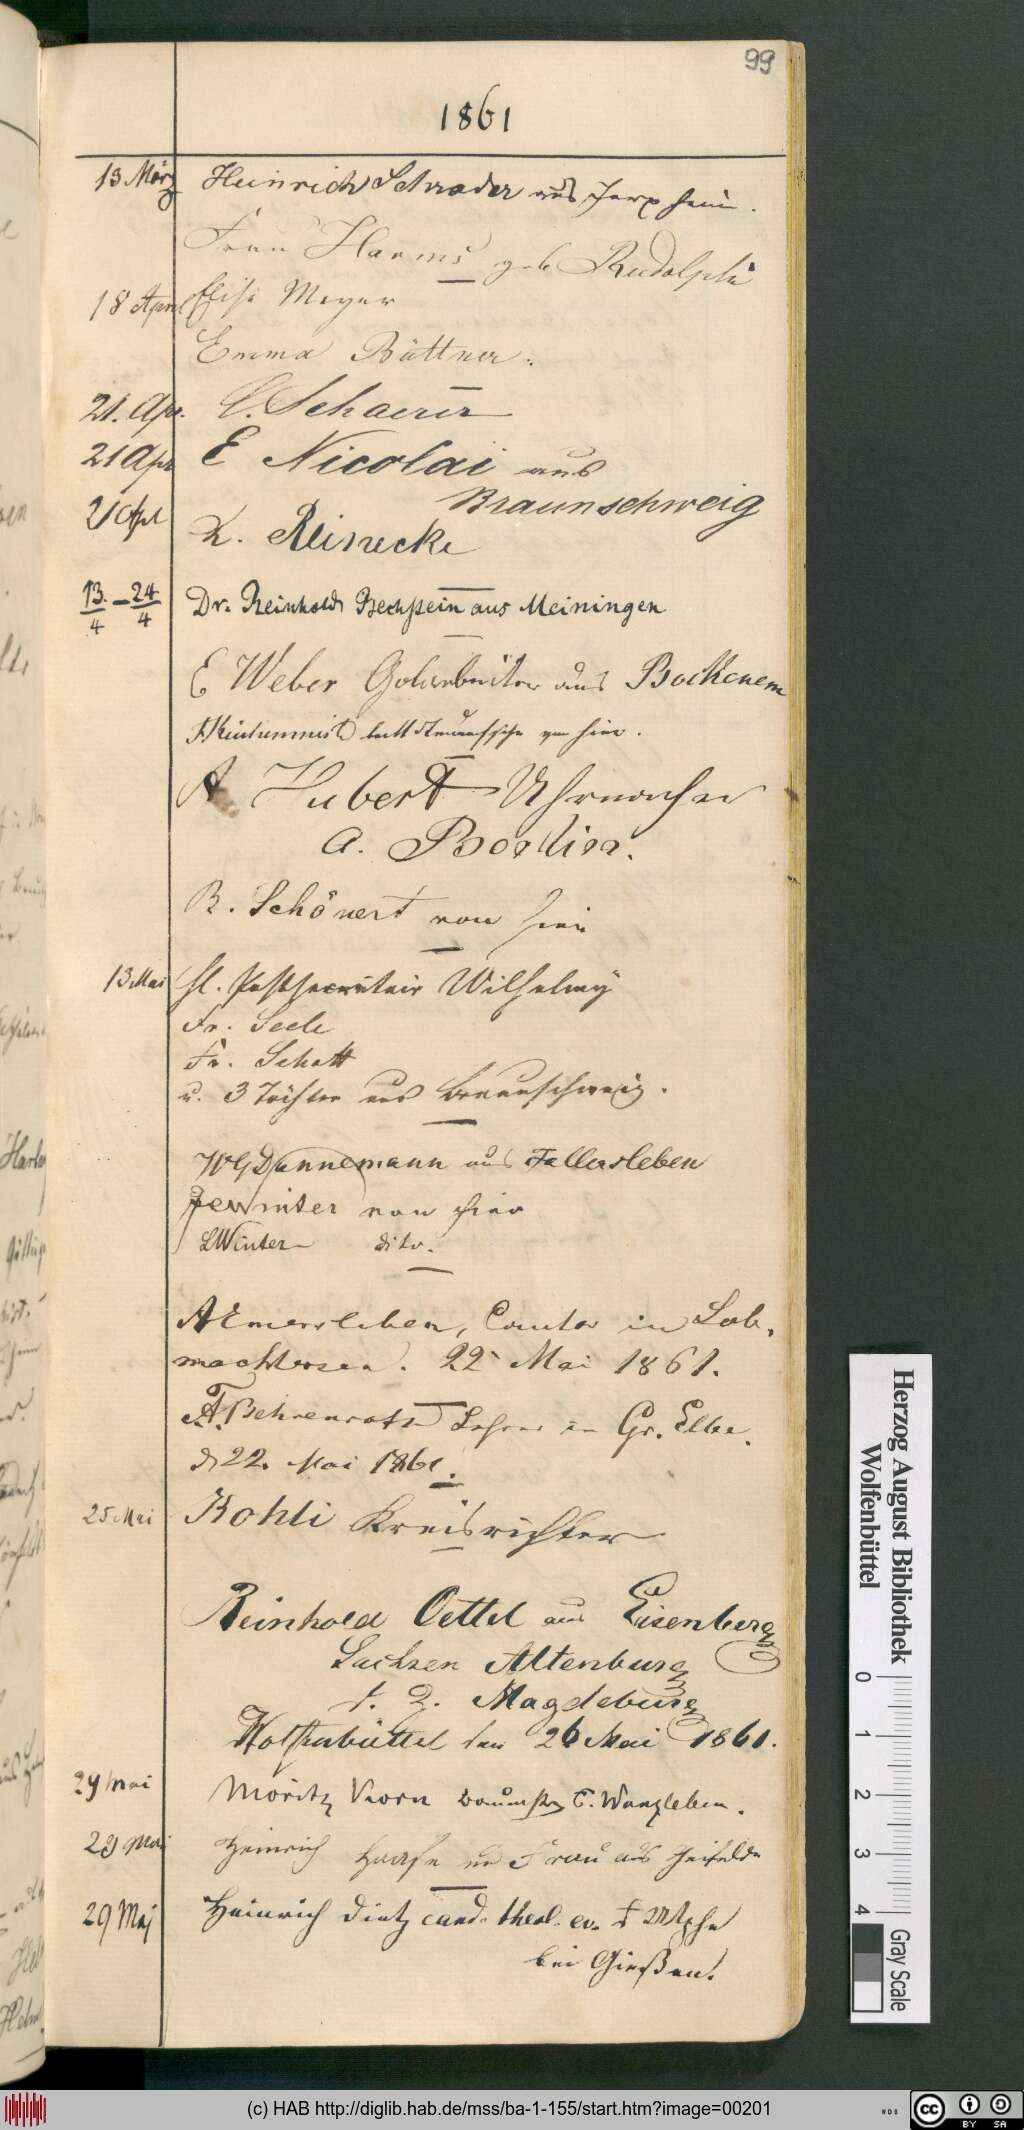 99
1861
13 März Heinrich Schrader aus Jerxheim.
Frau Harms geb Rudolphi
18 Apr Elise Meyer
Emma Büttner.
21. Apr. C. Schaerer
21 Apr E Nicolai aus
Braunschweig
21 Apl L. Reinecke
13./4 – 24/4 Dr. Reinhold Bechstein aus Meiningen
E Weber Goldarbeiter aus Bockenem
von hier.
A Hubert Uhrmacher
A.
B. Schönert von hier
13 Mai H. Postsecretair Wilhelmy
Fr. Seele
Fr. Schott
u. 3 Töchter aus Braunschweig.
W G Dannemann aus Fallersleben
von hier
L Winter dito.
A Emersleben, Cantor in Lob-
machtersen. 22 Mai 1861.
A. Behrens Lehrer in Gr. Elbe.
d 22. Mai 1861.
25 Mai Kohli Kreisrichter
Reinhold Oettel aus Eisenberg
Sachsen Altenburg
Magdeburg
Wolfenbüttel den 26 Mai 1861.
29 Mai Moritz Korn Wanzleben.
29 Mai Heinrich Haase un Frau aus Geitelde
29 Maj Heinrich Dietz cand. theol. ev.
bei Gießen.
Herzog August Bibliothek
Wolfenbüttel
0 1 2 3 4
Gray Scale
(c) HAB http://diglib.hab.de/mss/ba-1-155/start.htm?image=00201
WDB
cc BY SA